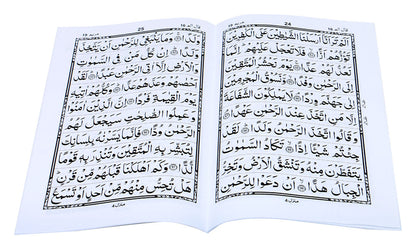 قال الم ١٦
24
مريم ١٩
اَلَمْ تَرَ اَنَّاۤ اَرْسَلْنَا الشَّيٰطِيْنَ عَلَى الْكٰفِرِيْنَ
تَؤُزُّهُمْ اَزًّا فَلَا تَعْجَلْ عَلَيْهِمْ اِنَّمَا
نَعُدُّ لَهُمْ عَدًّا يَوْمَ نَحْشُرُ الْمُتَّقِيْنَ
اِلَى الرَّحْمٰنِ وَفْدًا وَّنَسُوْقُ الْمُجْرِمِيْنَ
اِلٰى جَهَنَّمَ وِرْدًا لَا يَمْلِكُوْنَ الشَّفَاعَةَ
اِلَّا مَنِ اتَّخَذَ عِنْدَ الرَّحْمٰنِ عَهْدًا
وَقَالُوا اتَّخَذَ الرَّحْمٰنُ وَلَدًا لَقَدْ
جِئْتُمْ شَيْـًٔا اِدًّا تَكَادُ السَّمٰوٰتُ
يَتَفَطَّرْنَ مِنْهُ وَتَنْشَقُّ الْاَرْضُ وَتَخِرُّ
الْجِبَالُ هَدًّا اَنْ دَعَوْا لِلرَّحْمٰنِ
منزل ٤
قال الم ١٦
25
مريم ١٩
وَلَدًا وَمَا يَنْۢبَغِيْ لِلرَّحْمٰنِ اَنْ يَّتَّخِذَ
وَلَدًا اِنْ كُلُّ مَنْ فِي السَّمٰوٰتِ
وَالْاَرْضِ اِلَّاۤ اٰتِي الرَّحْمٰنِ عَبْدًا لَقَدْ
اَحْصٰىهُمْ وَعَدَّهُمْ عَدًّا وَكُلُّهُمْ اٰتِيْهِ
يَوْمَ الْقِيٰمَةِ فَرْدًا اِنَّ الَّذِيْنَ اٰمَنُوْا
وَعَمِلُوا الصّٰلِحٰتِ سَيَجْعَلُ لَهُمُ
الرَّحْمٰنُ وُدًّا فَاِنَّمَا يَسَّرْنٰهُ بِلِسَانِكَ
لِتُبَشِّرَ بِهِ الْمُتَّقِيْنَ وَتُنْذِرَ بِهٖ قَوْمًا
لُّدًّا وَكَمْ اَهْلَكْنَا قَبْلَهُمْ مِّنْ قَرْنٍ
هَلْ تُحِسُّ مِنْهُمْ مِّنْ اَحَدٍ اَوْ تَسْمَعُ
منزل ٤